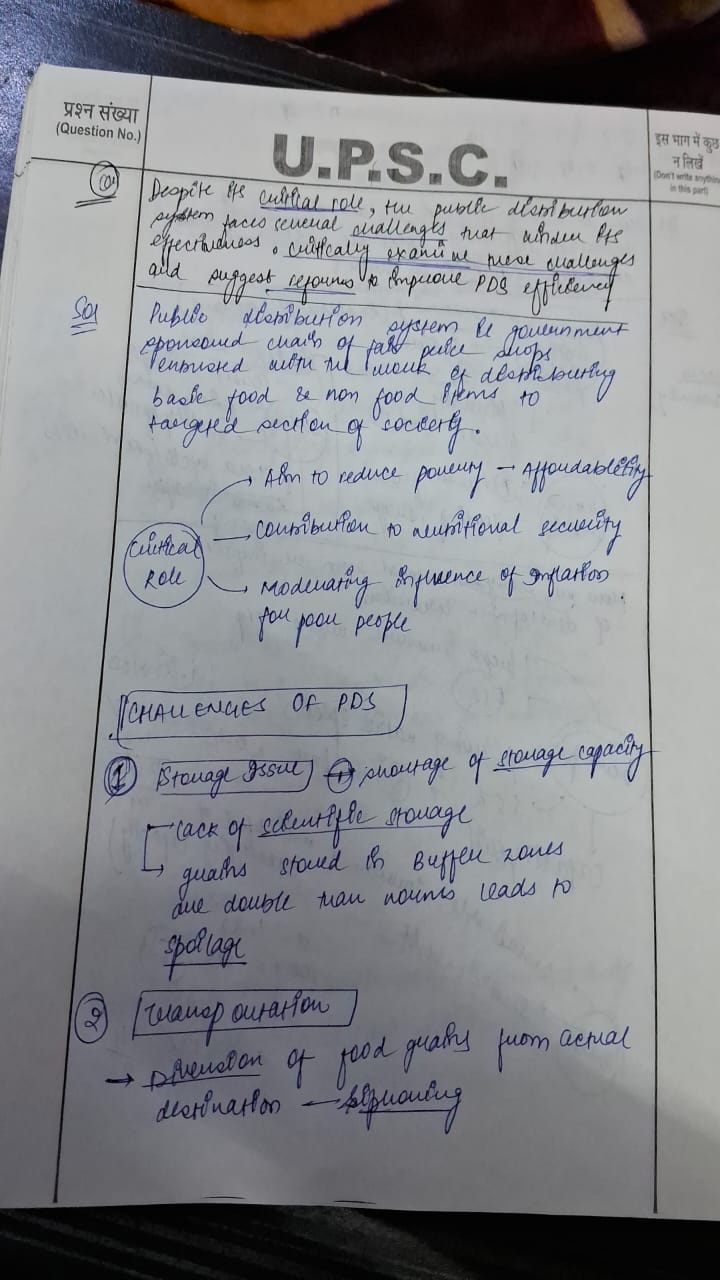 प्रश्न संख्या
(Question No.)
U.P.S.C.
इस भाग में कुछ
न लिखें
(Don't write anything
in this part)
Despite its critical role, the public distribution
system faces several challenges that hinder its
effectiveness. critically examine these challenges
and suggest reforms to improve PDS efficiency
Sol
Public distribution system is government
sponsored chain of fair price shops
entrusted with the work of distributing
basic food & non food items to
targeted section of society.
Critical
Role
→ Aim to reduce poverty - Affordability
→ Contribution to nutritional security
→ Moderating influence of Inflation
for poor people
CHALLENGES OF PDS
1 Storage Issue → shortage of storage capacity
Lack of scientific storage
→ grains stored in Buffer zones
are double than norms leads to
spoilage
2 Transportation
→ Diversion of food grains from actual
destination - siphoning